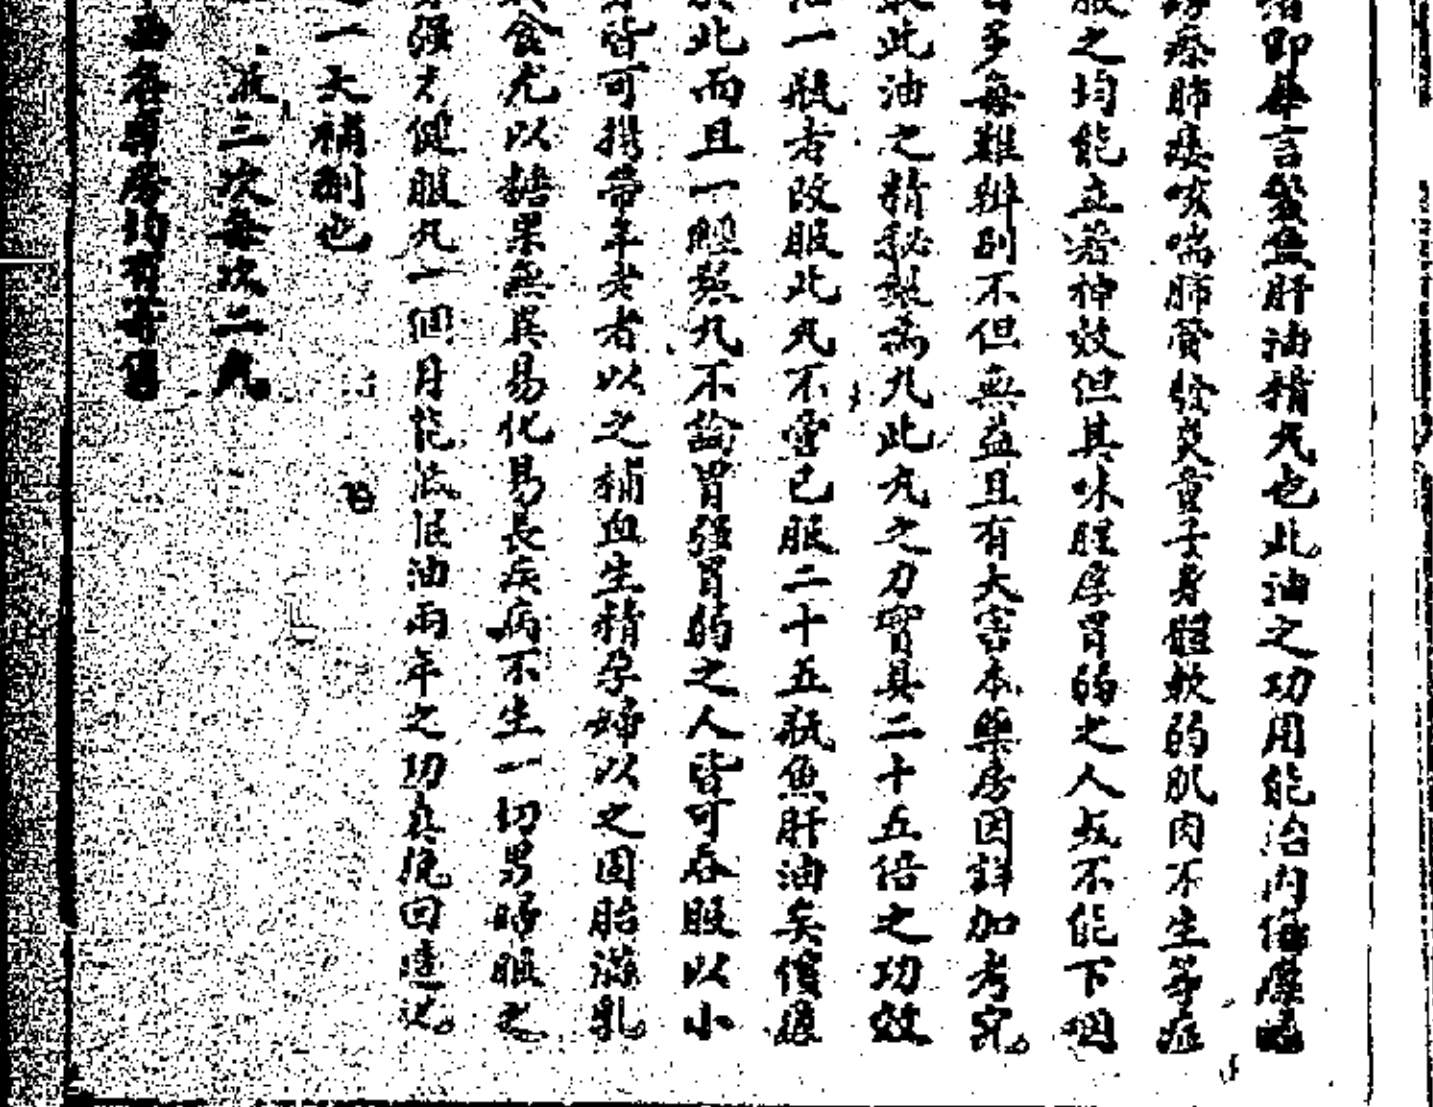 即華言鰵魚肝油精丸也此油之功用能治內傷
療肺痿咳喘肺管發炎童子身體軟弱肌肉不生等症
服之均能立著神效但其味腥厚胃弱之人或不能下咽
多每難辨別不但無益且有大害本藥房因詳加考究
此油之精秘製為丸此丸之力實具二十五倍之功效
一瓶者改服此丸不啻已服二十五瓶魚肝油矣
此而且一經製丸不論胃強胃弱之人皆可吞服以小
皆可攜帶年老者以之補血生精孕婦以之固胎滋乳
食尤以糖果無異易化易長疾病不生一切男婦服之
強才健服丸一個月能油兩年之功真
一大補劑也
三次每次二丸
各藥房均有寄售